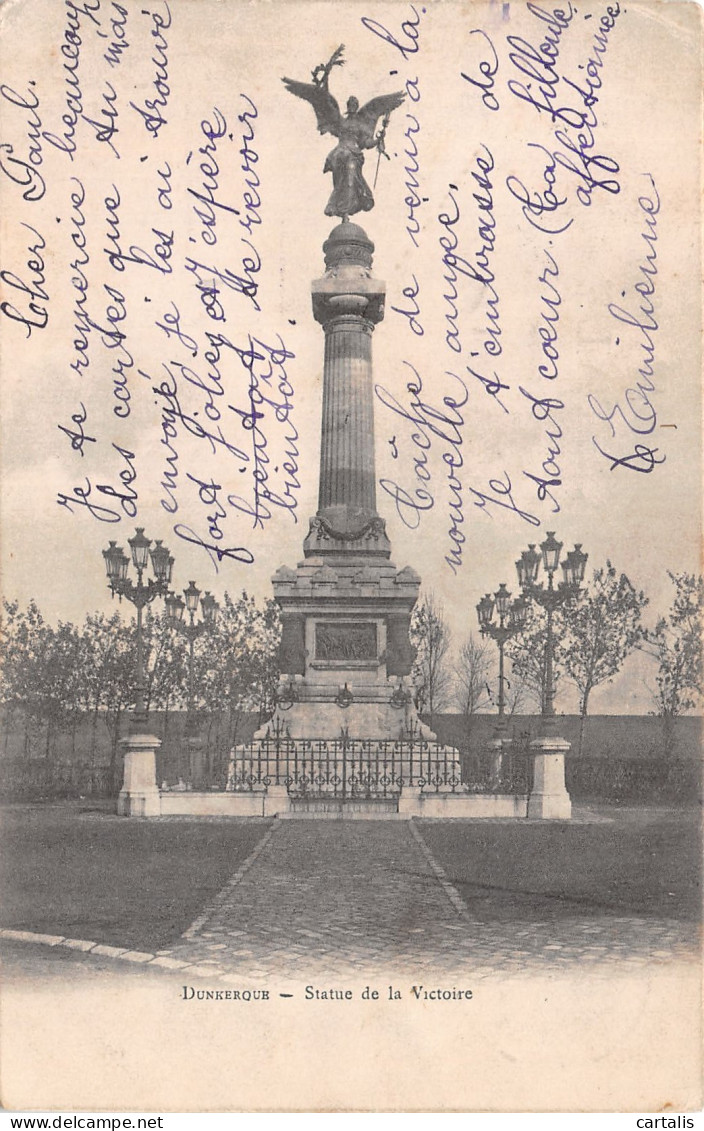 Cher Paul.
Je te remercie beaucoup
des cartes que tu m'as
envoyé, je les ai trouvé
fort jolies et j'espère
bientôt de te revoir
bientôt.
Tâche de venir à la
nouvelle
Je t'embrasse de
tout cœur. (Ta filloule
affectionnée
Emilienne
DUNKERQUE – Statue de la Victoire
cartalis